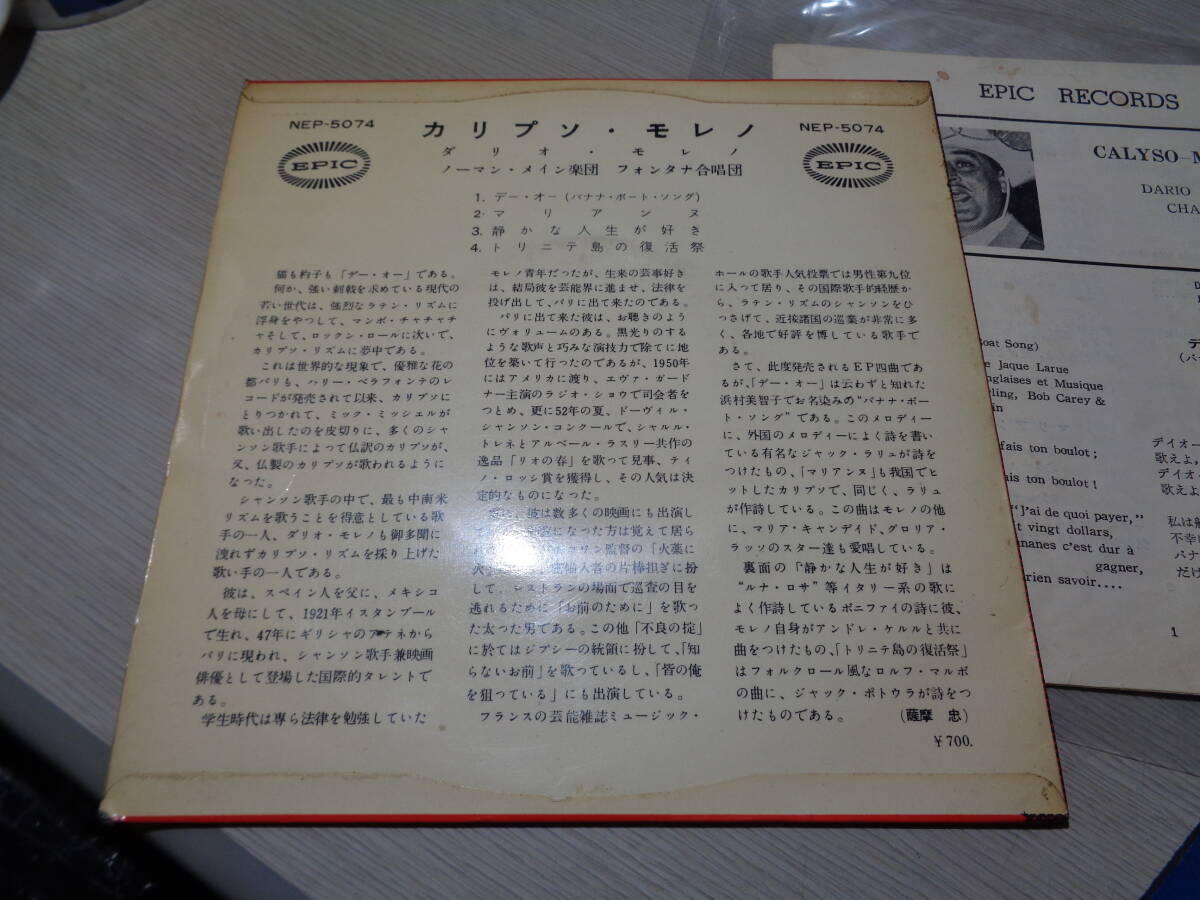 NEP-5074
カリプソ・モレノ
NEP-5074
EPIC
ダリオ・モレノ
EPIC
ノーマン・メイン楽団 フォンタナ合唱団
1. デー・オー(バナナ・ボート・ソング)
2. マリアンヌ
3. 静かな人生が好き
4. トリニテ島の復活祭
猫も杓子も「デー・オー」である。
何か、強い刺戟を求めている現代の
若い世代は、強烈なラテン・リズムに
浮身をやつして、マンボ・チャチャチ
ャそして、ロックン・ロールに次いで、
カリプソ・リズムに夢中である。
これは世界的な現象で、優雅な花の
都パリも、ハリー・ベラフォンテのレ
コードが発売されて以来、カリプソに
とりつかれて、ミック・ミッシェルが
歌い出したのを皮切りに、多くのシャ
ンソン歌手によって仏訳のカリプソが、
又、仏製のカリプソが歌われるように
なった。
シャンソン歌手の中で、最も中南米
リズムを歌うことを得意としている歌
手の一人、ダリオ・モレノも御多聞に
洩れずカリプソ・リズムを採り上げた
歌い手の一人である。
彼は、スペイン人を父に、メキシコ
人を母にして、1921年イスタンブール
で生れ、47年にギリシャのアテネから
パリに現われ、シャンソン歌手兼映画
俳優として登場した国際的タレントで
ある。
学生時代は専ら法律を勉強していた
モレノ青年だったが、生来の芸事好き
は、結局彼を芸能界に進ませ、法律を
投げ出して、パリに出て来たのである。
パリに出て来た彼は、お聴きのよう
にヴォリュームのある。黒光りのする
ような歌声と巧みな演技力で除々に地
位を築いて行ったのであるが、1950年
にはアメリカに渡り、エヴァ・ガード
ナー主演のラジオ・ショウで司会者を
つとめ、更に52年の夏、ドーヴィル・
シャンソン・コンクールで、シャルル・
トレネとアルベール・ラスリー共作の
逸品「リオの春」を歌って見事、ティ
ノ・ロッシ賞を獲得し、その人気は決
定的なものになった。
彼は数多くの映画にも出演し
になった方は覚えて居ら
ワン監督の「火薬に
火 婦人者の片棒担ぎに扮
して、レストランの場面で巡査の目を
逃れるために「お前のために」を歌っ
た太った男である。この他「不良の掟」
に於てはジプシーの統領に扮して、「知
らないお前」を歌っているし、「皆の俺
を狙っている」にも出演している。
フランスの芸能雑誌ミュージック・
ホールの歌手人気投票では男性第九位
に入って居り、その国際歌手的経歴か
ら、ラテン・リズムのシャンソンをひ
っさげて、近接諸国の巡業が非常に多
く、各地で好評を博している歌手で
ある。
さて、此度発売されるEP四曲であ
るが、「デー・オー」は云わずと知れた
浜村美智子でお名染みの“バナナ・ボー
ト・ソング”である。このメロディー
に、外国のメロディーによく詩を書い
ている有名なジャック・ラリュが詩を
つけたもの、「マリアンヌ」も我国でヒ
ットしたカリプソで、同じく、ラリュ
が作詩している。この曲はモレノの他
に、マリア・キャンデイド、グロリア・
ラッソのスター達も愛唱している。
裏面の「静かな人生が好き」は
“ルナ・ロサ”等イタリー系の歌に
よく作詩しているボニファイの詩に彼、
モレノ自身がアンドレ・ケルルと共に
曲をつけたもの、「トリニテ島の復活祭」
はフォルクロール風なロルフ・マルボ
の曲に、ジャック・ポトウラが詩をつ
けたものである。 (薩摩 忠)
¥700.
EPIC RECORDS
CALYSO-M
DARIO
CHA
Boat Song)
e Jaque Larue
nglaises et Musique
ling, Bob Carey &
in
fais ton boulot;
ais ton boulot!
“J'ai de quoi payer,”
t vingt dollars,
nanes c'est dur à
gagner,
rien savoir....
デ
(バ
デイオ
歌えよ,
デイオ
歌えよ
私は
不幸
バナ
だけ
1